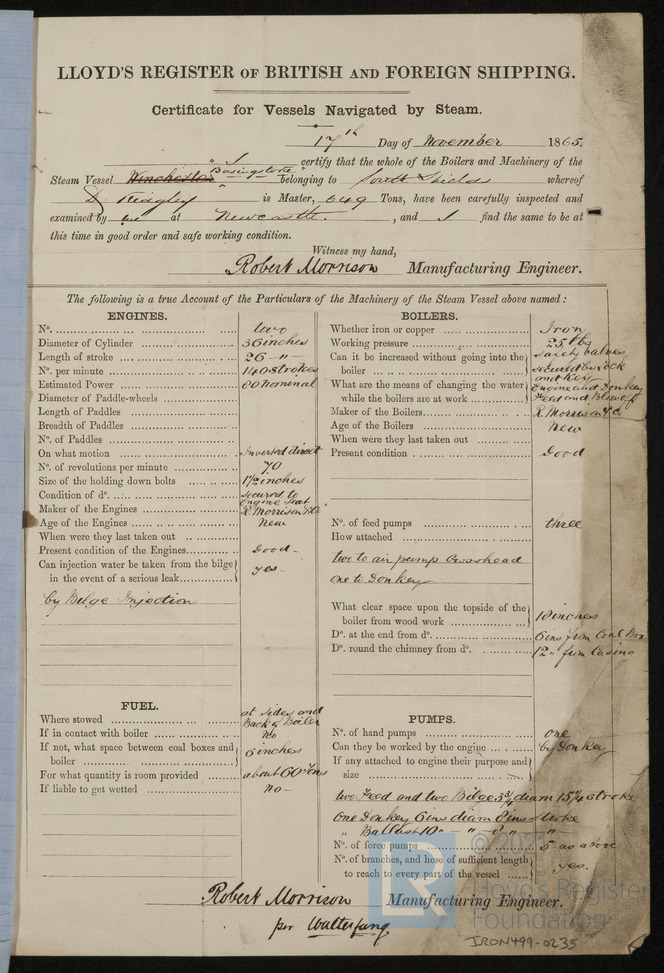 LLOYD'S REGISTER OF BRITISH AND FOREIGN SHIPPING.
Certificate for Vessels Navigated by Steam.
17th Day of November 1865.
I certify that the whole of the Boilers and Machinery of the
Steam Vessel Winchester "Basingstoke" belonging to South Shields whereof
D. Ridgley is Master, 649 Tons, have been carefully inspected and
examined by me at Newcastle. , and I find the same to be at
this time in good order and safe working condition.
Witness my hand,
Robert Morrison Manufacturing Engineer.
The following is a true Account of the Particulars of the Machinery of the Steam Vessel above named:
ENGINES.
No. two
Diameter of Cylinder 36 inches
Length of stroke 26 - " -
No. per minute 140 strokes
Estimated Power 80 Nominal
Diameter of Paddle-wheels
Length of Paddles
Breadth of Paddles
No. of Paddles
On what motion Inverted direct
No. of revolutions per minute 70
Size of the holding down bolts 1½ inches
Condition of do. secured to Engine seat
Maker of the Engines R. Morrison & Co
Age of the Engines New
When were they last taken out
Present condition of the Engines Good -
Can injection water be taken from the bilge
in the event of a serious leak yes -
by Bilge Injection
FUEL.
Where stowed at sides and Back of Boiler
If in contact with boiler No
If not, what space between coal boxes and
boiler 6 inches
For what quantity is room provided about 60 Tons
If liable to get wetted No -
BOILERS.
Whether iron or copper Iron
Working pressure 25 lbs
Can it be increased without going into the
boiler Safety valves secured by lock and key
What are the means of changing the water
while the boilers are at work Engine and Donkey Feed and Blow off
Maker of the Boilers R. Morrison & Co
Age of the Boilers New
When were they last taken out
Present condition Good
No. of feed pumps three
How attached
two to air pump Crosshead
one to Donkey
What clear space upon the topside of the
boiler from wood work 18 inches
Do. at the end from do. 6 ins from Coal Box
Do. round the chimney from do. 12" from Casing
PUMPS.
No. of hand pumps one
Can they be worked by the engine by Donkey
If any attached to engine their purpose and
size
two Feed and two Bilge 3¾ diam 15¼ stroke
One Donkey 6 ins diam 8 ins stroke
" Ballast 10 " " "
No. of force pumps 5 as above
No. of branches, and hose of sufficient length
to reach to every part of the vessel yes.
Robert Morrison Manufacturing Engineer.
per
© 202
LR
Lloyd's Register
Foundation
IRON499-0235